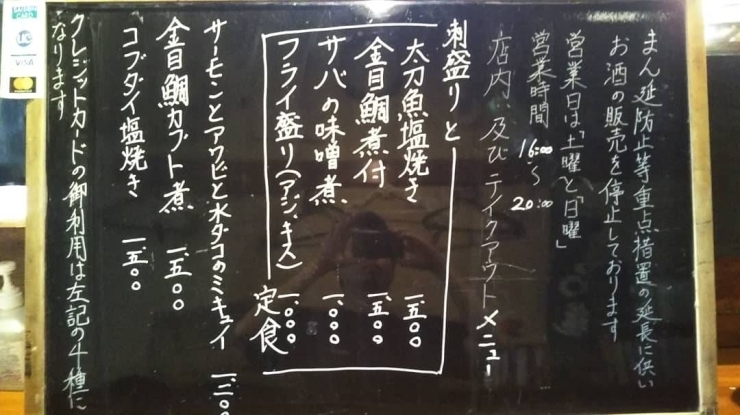 まん延防止等重点措置の延長に供い
お酒の販売を停止しております
営業日は「土曜」と「日曜」
営業時間 16:00～20:00
店内、及びテイクアウトメニュー
刺盛りと
太刀魚塩焼き 1,500
金目鯛煮付 1,500
サバの味噌煮 1,000
フライ盛り(アジ、キス) 1,000
定食
サーモンとアワビと水ダコのミキュイ 1,200
金目鯛カブト煮 1,500
コブダイ塩焼き 1,500
クレジットカードの御利用は左記の4種に
なります
UC
VISA